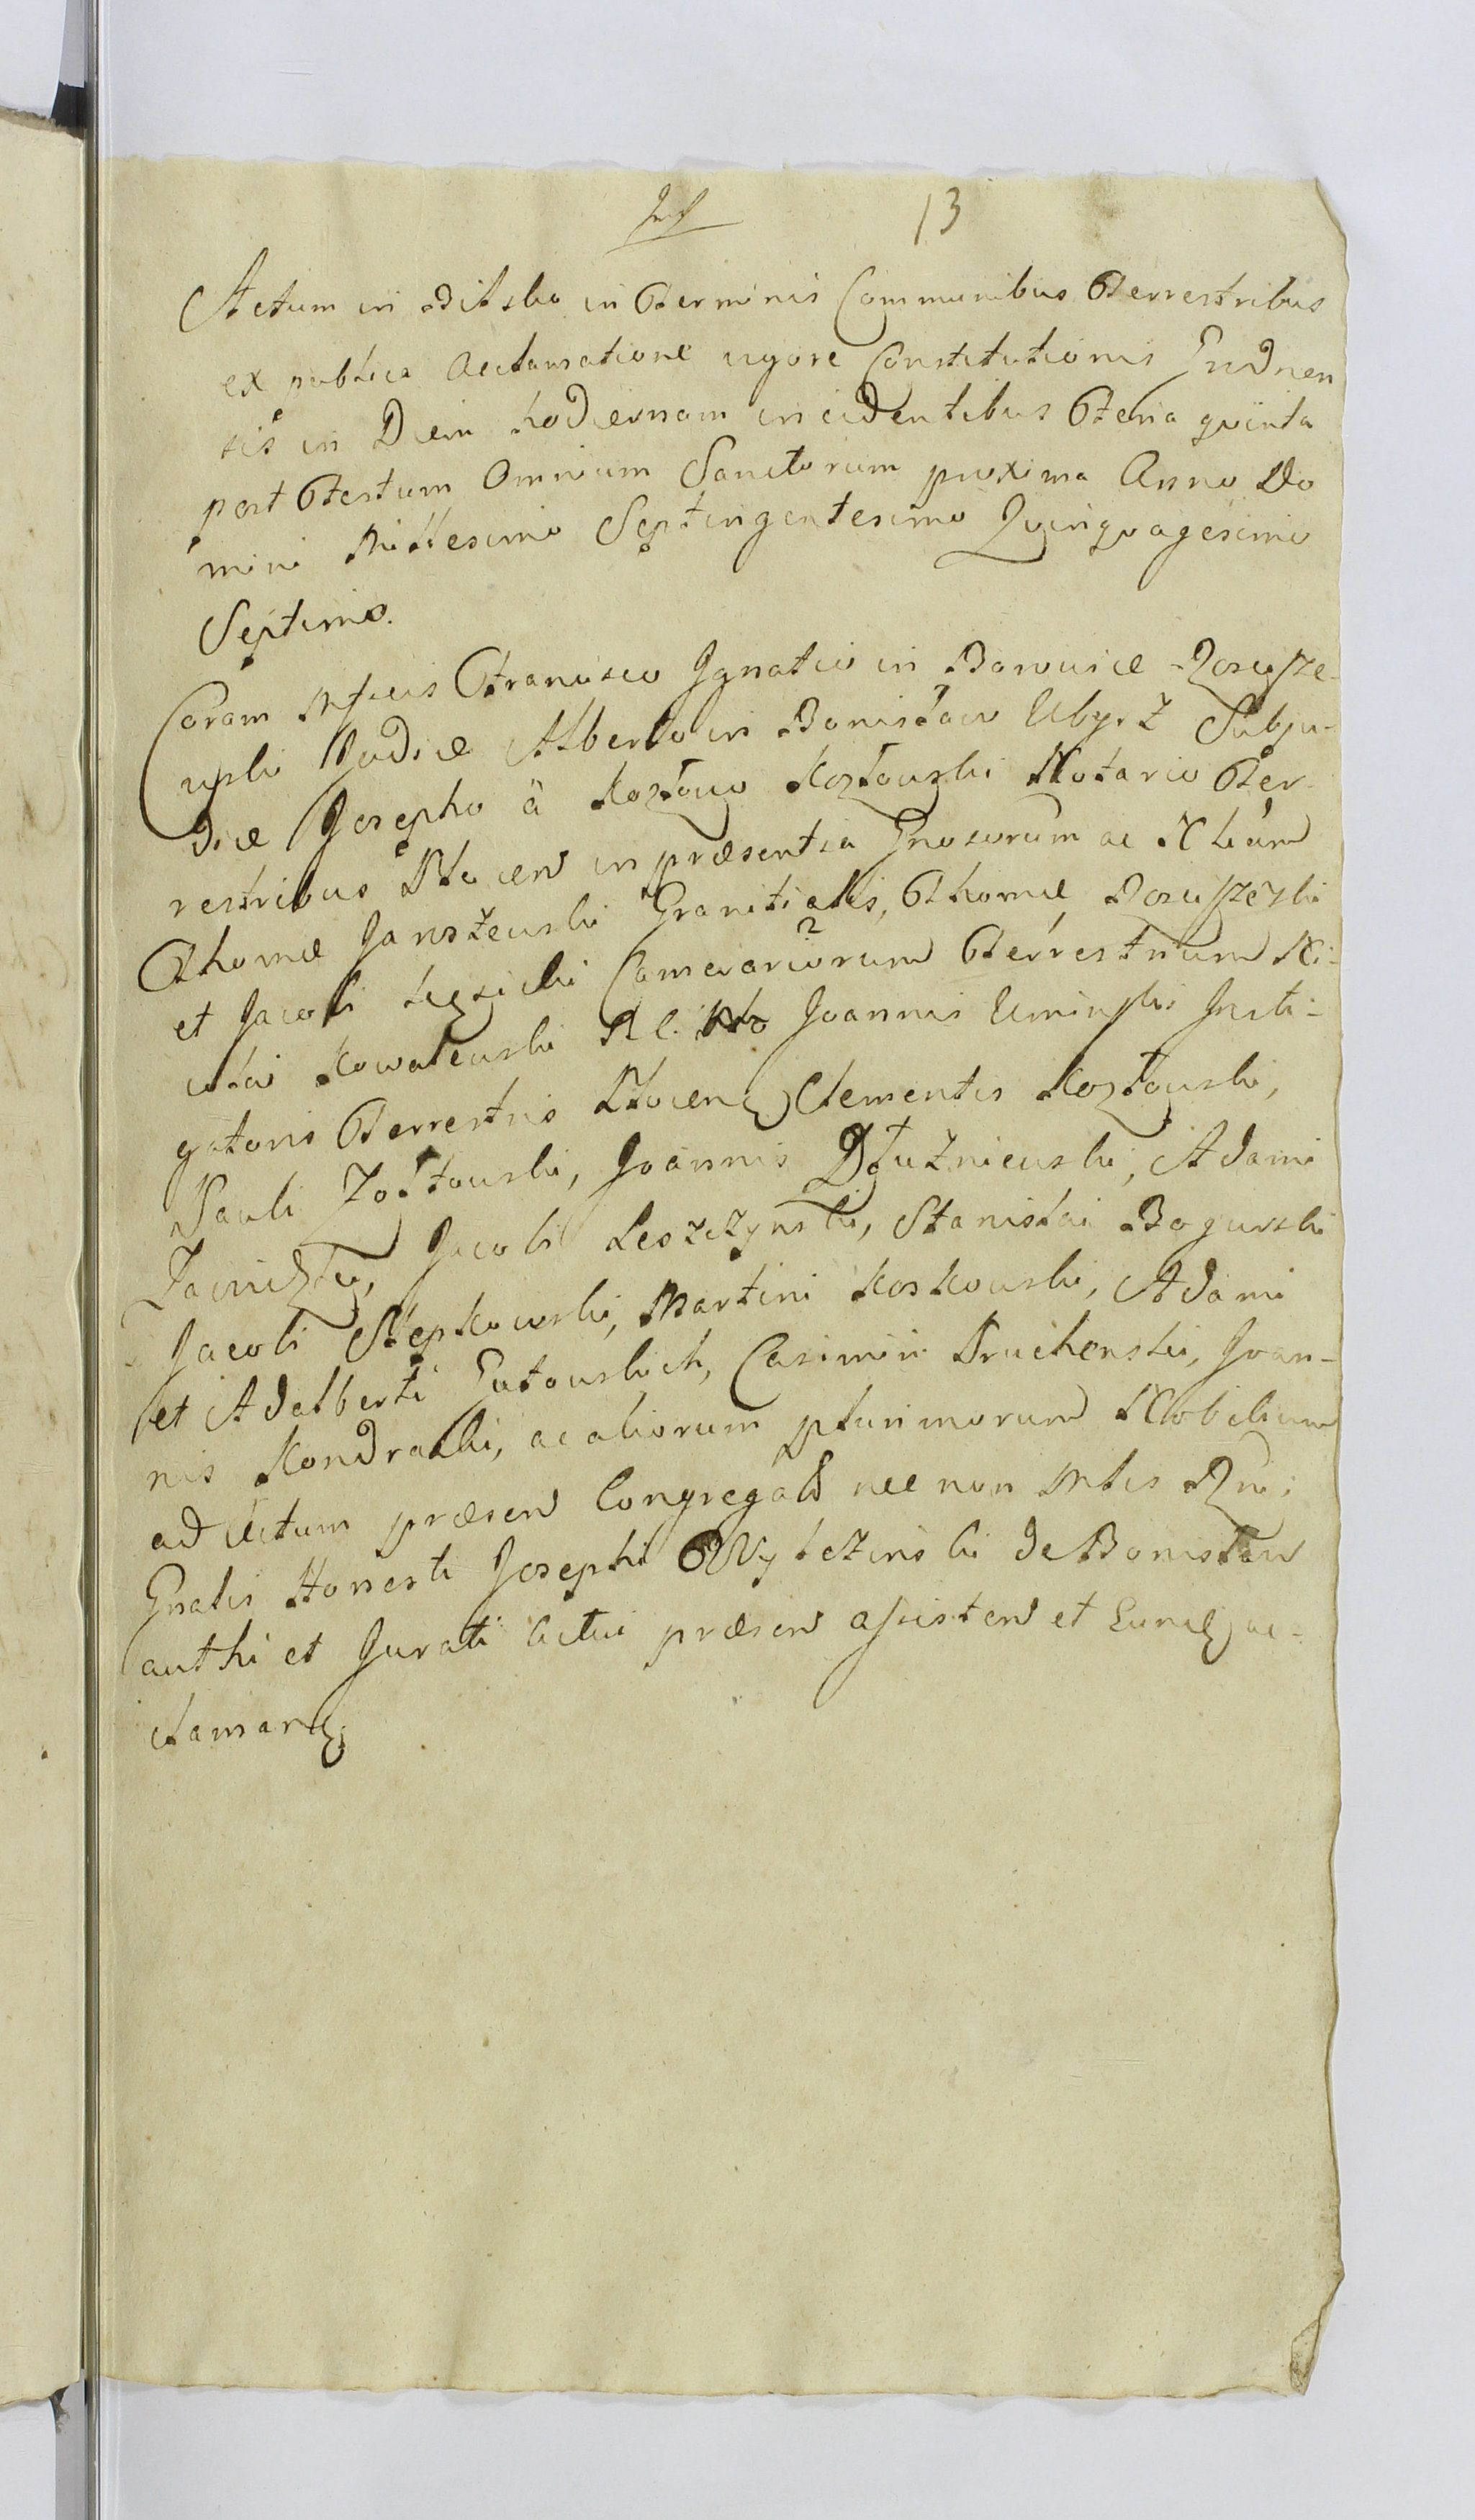 13
Actum in Bielsko in Terminis Communibus Terrestribus
ex publica acclamatione vigore Constitutionis Grodnen
sis in Diem hodiernam incidentibus Feria quinta
post Festum Omnium Sanctorum proxima Anno Do
mini Millesimo Septingentesimo Quinquagesimo
Septimo.
Coram Mficis Francisco Ignatio in Borowice Rosciſze-
wski Judice Alberto in Bonisław Ubysz Subju-
dice Josepho à Kozłowo Kozłowski Notario Ter-
restribus Plocen in præsentia Gnosorum ac Nlium
Thomæ Janszewski Granitialis, Thomæ Rosciſzewski
et Jacobi Camerariorum Terrestrium Ni-
colai Kowalewski Joannis Umińſki Insti-
gatoris Terrestris Plocen Clementis Kozłowski,
Pauli Zołtowski, Joannis Dłużniewski, Adami
Jacobi Leszczynski, Stanislai Bogurski
Jacobi Stępkowski, Martini Koskowski, Adami
et Adalberti Gutowskich, Casimiri Druchenski, Joan-
nis Kondracki, ac aliorum plurimorum Nobilium
ad Actum præsen Congregatt nec non Mtis Rni
Gnalis Honesti Josephi Wylezinski de Bonisław
authi et Jurati actui præsen aſsisten et
clamanq